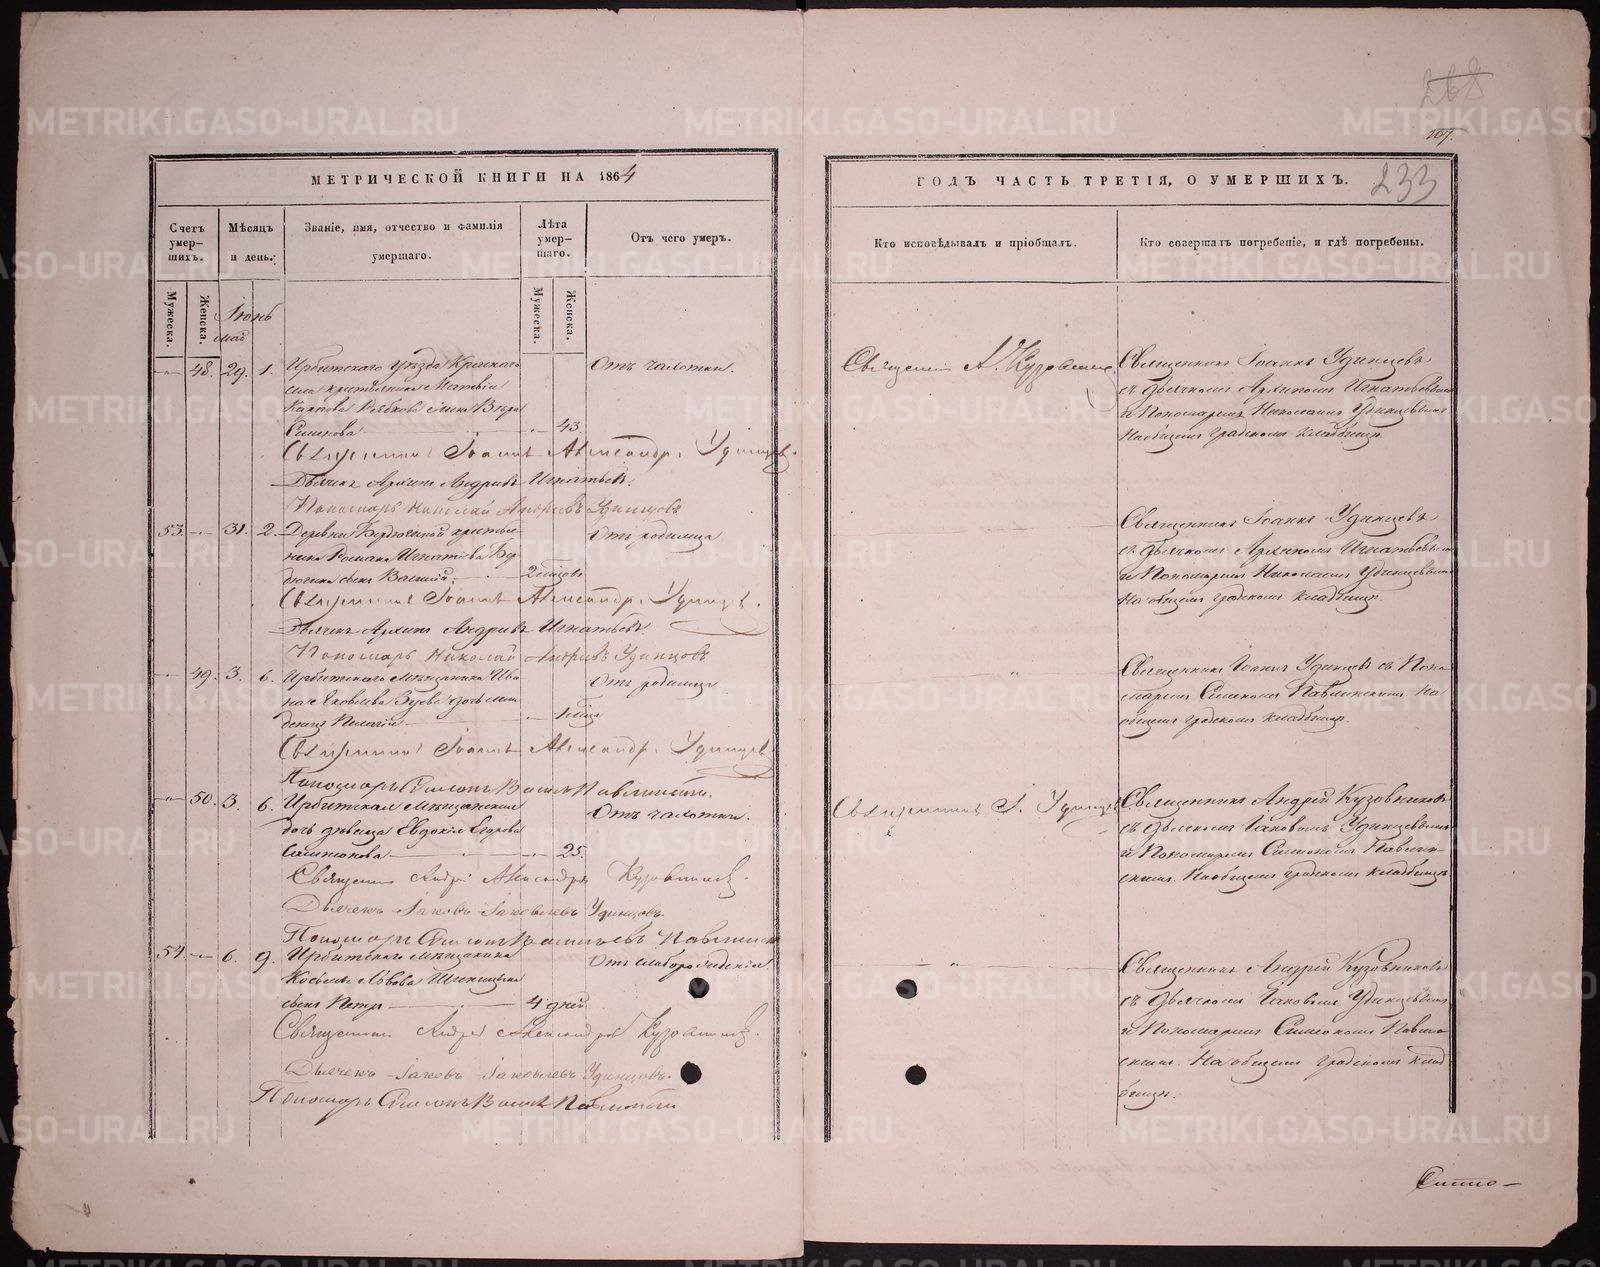 METRIKI.GASO-URAL.RU
268
107.
МЕТРИЧЕСКОЙ КНИГИ НА 1864
Счетъ умер-шихъ.
Мѣсяцъ и день.
Званіе, имя, отчество и фамилія умершаго.
Лѣта умер-шаго.
Отъ чего умеръ.
Мужеска.
Женска.
Іюнь
май
Мужеска.
Женска.
48. 29. 1. Ирбитскаго уѣзда
Матвѣя
Карпова жена Вѣра
43.
Отъ чахотки.
Священникъ Іоаннъ Александр. Удинцев.
Дьячекъ Архипъ Андреевъ Игнатьевъ.
Пономарь Николай Андреевъ Удинцовъ
53. 31. 2. Деревни Бердюгиной крестья-
нина Романа Игнатіева Бер-
дюгина сынъ Василій.
2 мѣсяцовъ
Отъ родимца
Священникъ Іоаннъ Александр. Удинцев.
Дьячекъ Архипъ Андреевъ Игнатьевъ.
Пономарь Николай Андреевъ Удинцовъ
49. 3. 6. Ирбитскаго мѣщанина Ива-
на Яковлева дочь мла-
денецъ Пелагія
1 мѣсяца
Отъ родимца
Священникъ Іоаннъ Александр. Удинцев
Пономарь Симеонъ Павлинскій.
50. 3. 6. Ирбитская мѣщанская
дочь дѣвица Евдокія Егорова
25.
Отъ чахотки.
Священникъ Андрей Александровъ Кузовников.
Дьячекъ Іаковъ Іаковлевъ Удинцовъ.
Пономарь Симеонъ Васильевъ Павлинскій
54. 6. 9. Ирбитскаго мѣщанина
Косьмы Львова
сынъ Петръ
4 дней
Отъ слаборожденія
Священникъ Андрей Александровъ Кузовников.
Дьячекъ Іаковъ Іаковлевъ Удинцовъ.
Пономарь Симеонъ Павлинскій
ГОДЪ ЧАСТЬ ТРЕТІЯ, О УМЕРШИХЪ.
233
Кто исповѣдывалъ и пріобщалъ.
Кто совершалъ погребеніе, и гдѣ погребены.
Священникъ А. Кузовников
Священникъ Іоаннъ Удинцевъ
съ дьячкомъ Архипомъ Игнатьевымъ
и Пономаремъ Николаемъ Удинцевымъ
На общемъ градскомъ кладбищѣ.
Священникъ Іоаннъ Удинцевъ
съ дьячкомъ Архипомъ Игнатьевымъ
и Пономаремъ Николаемъ Удинцевымъ
На общемъ градскомъ кладбищѣ.
Священникъ Іоаннъ Удинцевъ съ Поно-
маремъ Симеономъ Павлинскимъ. На
общемъ градскомъ кладбищѣ.
Священникъ І. Удинцев
Священникъ Андрей Кузовниковъ
съ дьячкомъ Іаковомъ Удинцевымъ
и Пономаремъ Симеономъ Павлин-
скимъ. На общемъ градскомъ кладбищѣ
Священникъ Андрей Кузовниковъ
съ дьячкомъ Іаковомъ Удинцевымъ
и Пономаремъ Симеономъ Павлин-
скимъ. На общемъ градскомъ клад-
бищѣ.